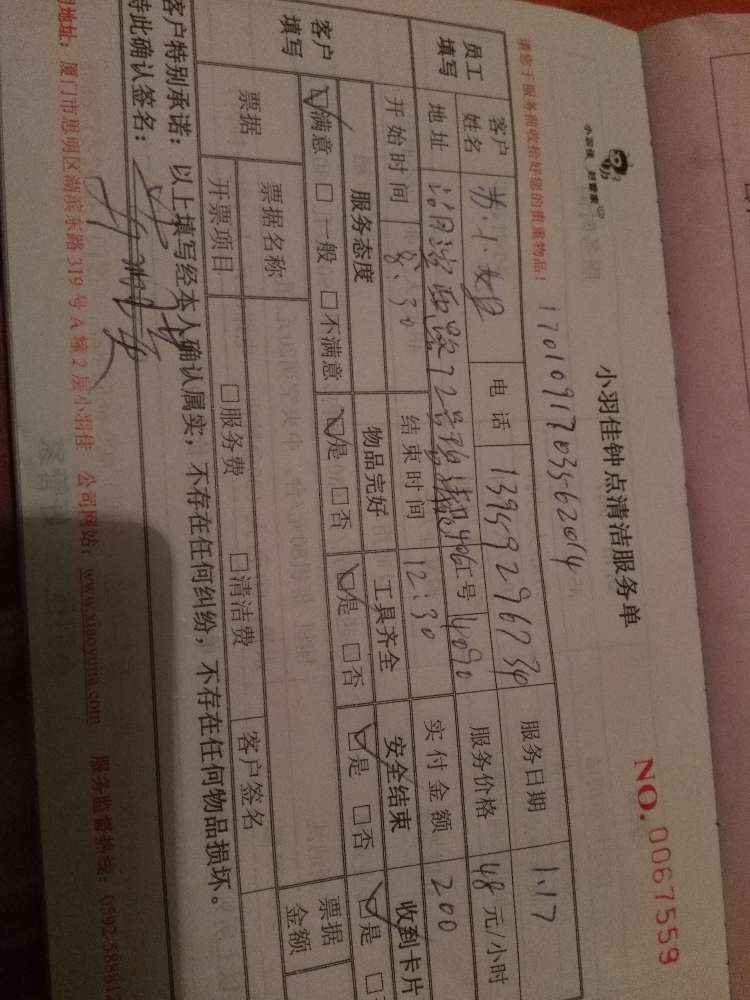 小羽佳 好管家
小羽佳钟点清洁服务单
NO.0067559
请您于服务前收拾好您的贵重物品！
1701091703562014
员工填写
客户姓名 苏小姐 电话 13959296734 服务日期 1.17
地址 湖滨西路72号 406 工号 4090 服务价格 48元/小时
开始时间 8:30 结束时间 12:30 实付金额 200
客户填写
服务态度 物品完好 工具齐全 安全结束 收到卡片
☑满意 □一般 □不满意 ☑是 □否 ☑是 □否 ☑是 □否 ☑是 □
票据 票据名称 客户签名 票据金额
开票项目 □服务费 □清洁费
客户特别承诺：以上填写经本人确认属实，不存在任何纠纷，不存在任何物品损坏。
特此确认签名：
司地址：厦门市思明区湖滨东路319号A幢2层小羽佳 公司网站：www.xiaoyujia.com 服务监督热线：0592-58881